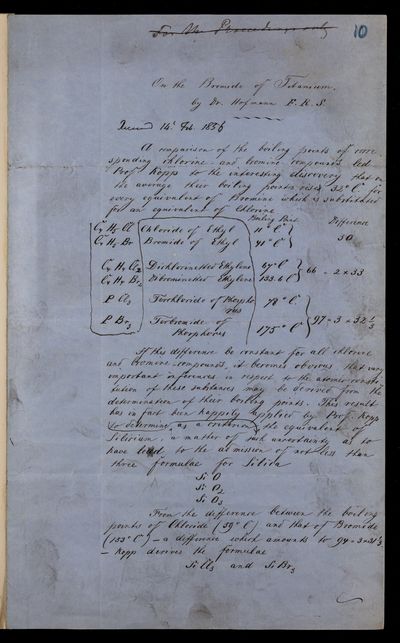 For the Proceedings only
10
On the Bromide of Titanium.
by Dr. Hofmann F.R.S.
14th Feb. 1856
A comparison of the boiling points of corre
sponding chlorine- and bromine- compounds led
Prof. Kopp to the interesting discovery that on
the average their boiling points rises 32° C for
every equivalent of Bromine which is substituted
for an equivalent of Chlorine
Boiling Point. Difference
C4 H5 Cl Chloride of Ethyl 11° C
C4 H5 Br Bromide of Ethyl 41° C 30
C4 H4 Cl2 Dichlorinetted Ethylene
C4 H4 Br2 Dibrominetted Ethylene 66 = 2 x 33
P Cl3 Terchloride of Phospho
rus 78° C
P Br3 Terbromide of 97 = 3 x 32 1/3
Phosphorus 175° C
If this difference be constant for all chlorine
and bromine-compounds, it becomes obvious that very
important inferences in respect to the atomic consti
tution of these substances may be derived from the
determination of their boiling points. This result
has in fact been happily applied by Prof. Kopp
to determine as a criterion the equivalent of
Silicium, a matter of such uncertainty as to
have lead to the admission of not less than
three formulae for Silica
Si O
Si O2
Si O3
From the difference between the boiling
points of Chloride (59° C) and that of Bromide
(153° C) – a difference which amounts to 94 = 3 x 31 1/3
– Kopp derives the formulae
Si Cl3 and Si Br3